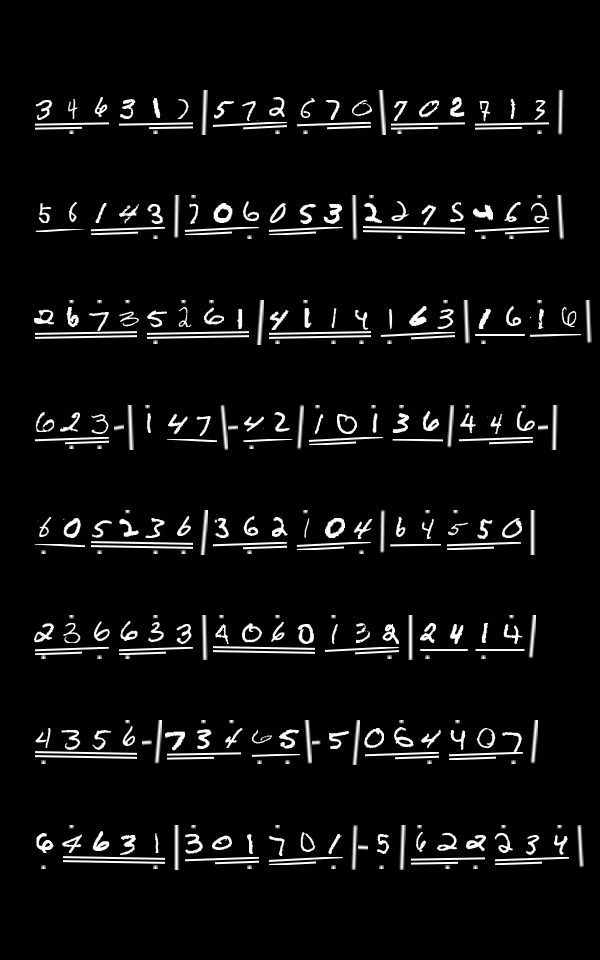 346317|572670|702713
56143|706053|2275462
26735261|4114163|1616
623-|147|-42|10136|446-|
605236|362104|64550|
236633|4060132|2414|
4356-|73465|-5|064407|
64631|301701|-5|622234|